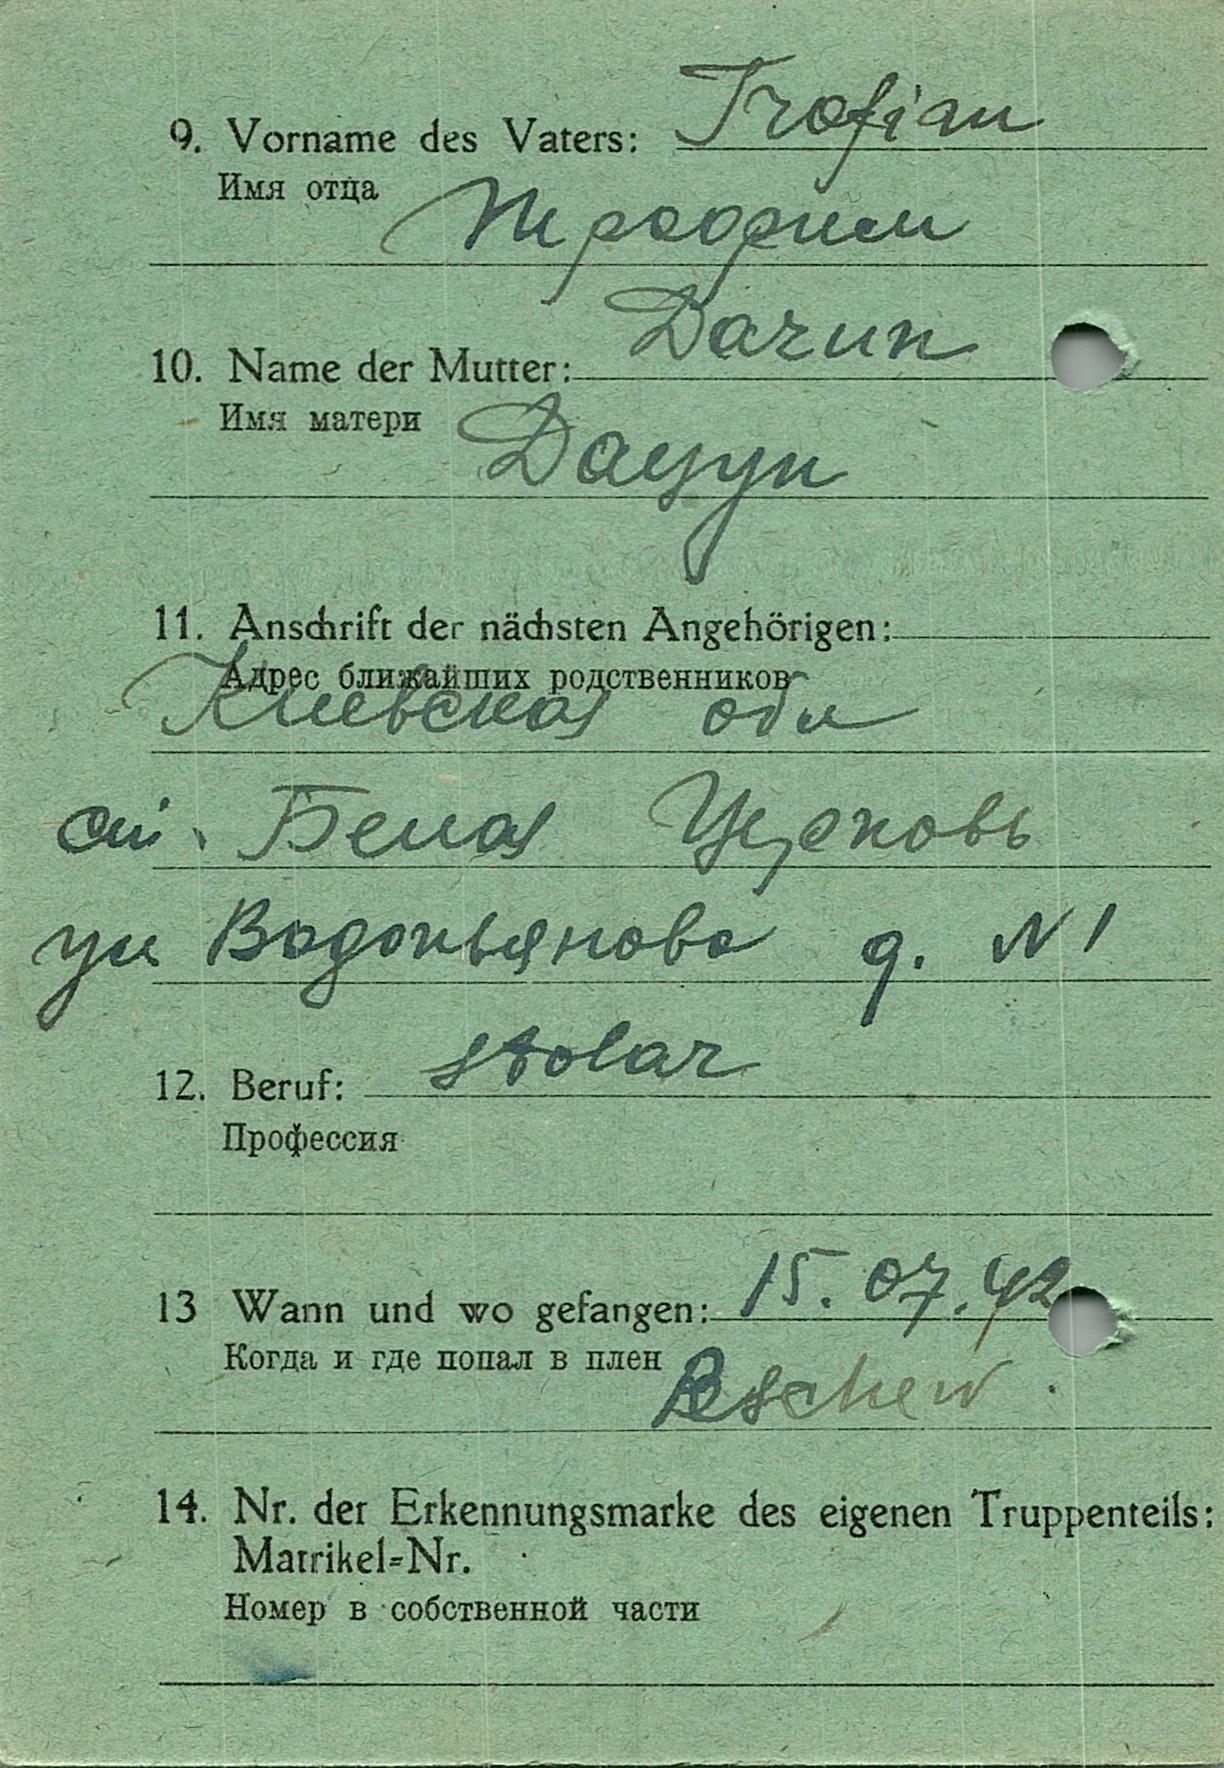 9. Vorname des Vaters: Trofim
Имя отца
Трофим
10. Name der Mutter:
Имя матери
11. Anschrift der nächsten Angehörigen:
Адрес ближайших родственников
Киевская обл
ст. Белая Церковь
ул Водопьянова д. N 1
12. Beruf: stolar
Профессия
13 Wann und wo gefangen: 15.07.42
Когда и где попал в плен
14. Nr. der Erkennungsmarke des eigenen Truppenteils:
Matrikel=Nr.
Номер в собственной части